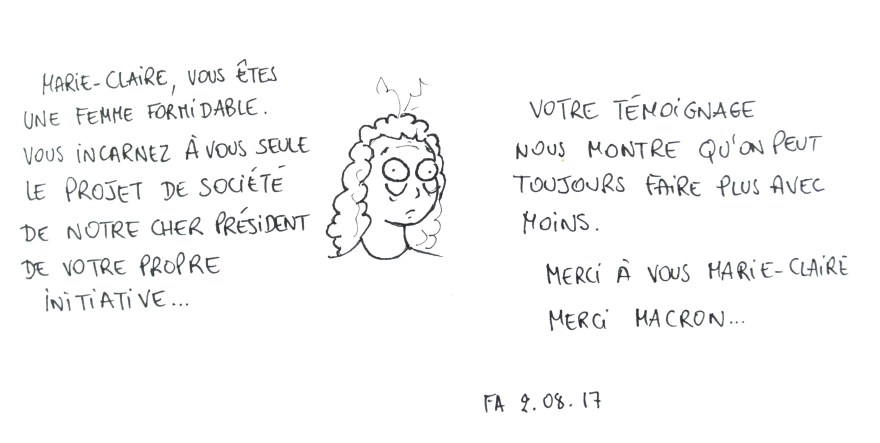 MARIE-CLAIRE, VOUS ÊTES
UNE FEMME FORMIDABLE.
VOUS INCARNEZ À VOUS SEULE
LE PROJET DE SOCIÉTÉ
DE NOTRE CHER PRÉSIDENT
DE VOTRE PROPRE
INITIATIVE...
VOTRE TÉMOIGNAGE
NOUS MONTRE QU'ON PEUT
TOUJOURS FAIRE PLUS AVEC
MOINS.
MERCI À VOUS MARIE-CLAIRE
MERCI MACRON...
FA 2.08.17